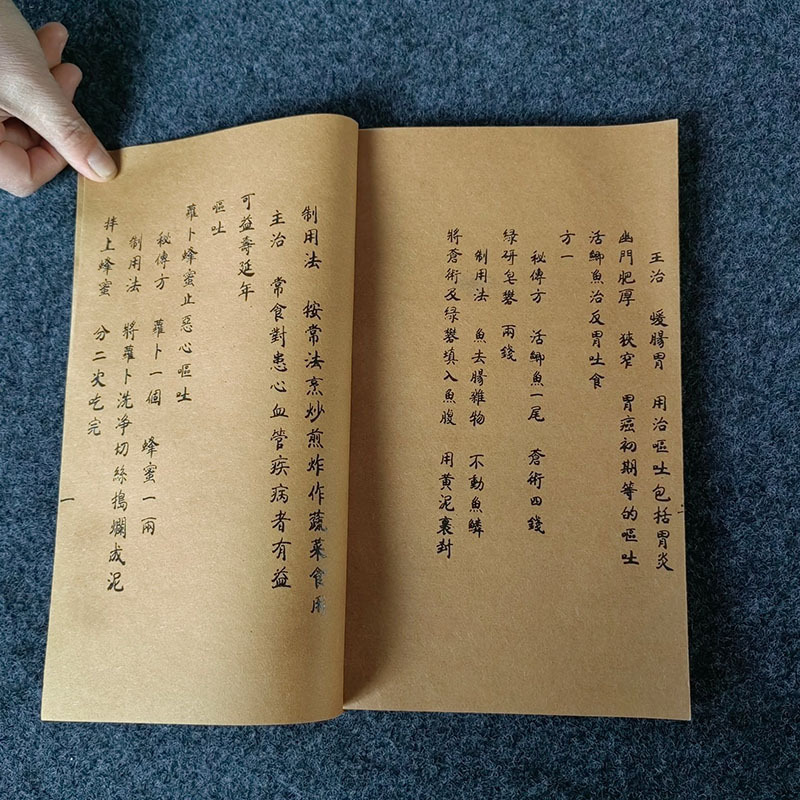 制用法 按常法烹炒煎炸作蔬菜食用
主治 常食對患心血管疾病者有益
可益壽延年
嘔吐
蘿卜蜂蜜止惡心嘔吐
秘傳方 蘿卜一個 蜂蜜一兩
制用法 將蘿卜洗净切絲搗爛成泥
拌上蜂蜜 分二次吃完
一
主治 暖腸胃 用治嘔吐包括胃炎
幽門肥厚 狹窄 胃癌初期等的嘔吐
活鯽魚治反胃吐食
方一
秘傳方 活鯽魚一尾 蒼術四錢
绿研皂礬 兩錢
制用法 魚去腸雜物 不動魚鱗
將蒼術及绿礬填入魚腹 用黄泥裹封